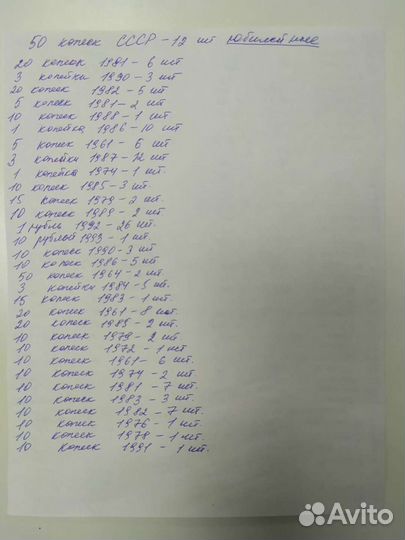 50 копеек СССР - 12 шт юбилейные
20 копеек 1981 - 6 шт
3 копейки 1990 - 3 шт
20 копеек 1982 - 5 шт
5 копеек 1981 - 2 шт
10 копеек 1988 - 1 шт
1 копейка 1986 - 10 шт
5 копеек 1961 - 6 шт
3 копейки 1987 - 12 шт
1 копейка 1974 - 1 шт.
10 копеек 1985 - 3 шт.
15 копеек 1979 - 2 шт.
10 копеек 1989 - 2 шт
1 рубль 1992 - 26 шт.
10 рублей 1993 - 1 шт.
10 копеек 1990 - 3 шт
10 копеек 1986 - 5 шт
50 копеек 1964 - 2 шт.
3 копейки 1984 - 5 шт.
15 копеек 1983 - 1 шт.
20 копеек 1961 - 8 шт.
20 копеек 1989 - 2 шт.
10 копеек 1979 - 2 шт.
10 копеек 1972 - 1 шт
10 копеек 1961 - 6 шт.
10 копеек 1974 - 2 шт.
10 копеек 1981 - 7 шт.
10 копеек 1983 - 3 шт
10 копеек 1982 - 7 шт.
10 копеек 1976 - 1 шт.
10 копеек 1978 - 1 шт.
10 копеек 1991 - 1 шт.
Avito